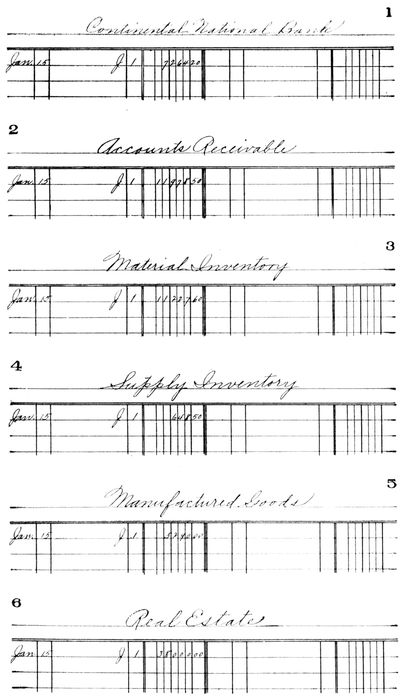 1
Continental National Bank
Jan. 15 J 1 7264 20
2
Accounts Receivable
Jan. 15 J 1 11978 50
3
Material Inventory
Jan. 15 J 1 11227 60
4
Supply Inventory
Jan. 15 J 1 648 50
5
Manufactured Goods
Jan. 15 J 1
6
Real Estate
Jan. 15 J 1 38000 00